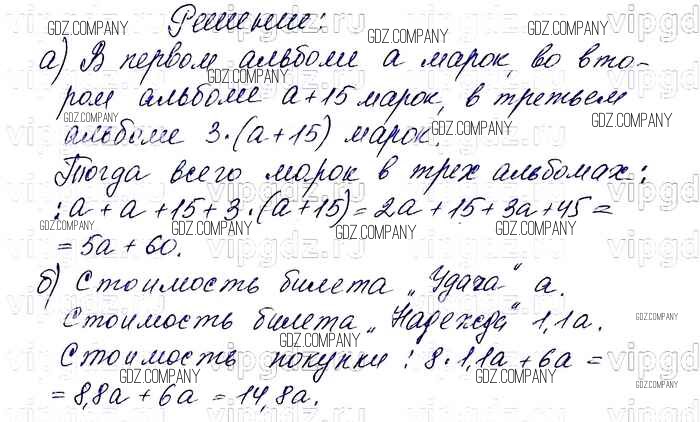 Решение:
а) В первом альбоме а марок, во вто-
ром альбоме а+15 марок, в третьем
альбоме 3·(а+15) марок.
Тогда всего марок в трех альбомах:
: а + а + 15 + 3·(а+15) = 2а + 15 + 3а + 45 =
= 5а + 60.
б) Стоимость билета „Удача“ а.
Стоимость билета „Надежда“ 1,1а.
Стоимость покупки: 8·1,1а + 6а =
= 8,8а + 6а = 14,8а.
GDZ.COMPANY
vipgdz.ru